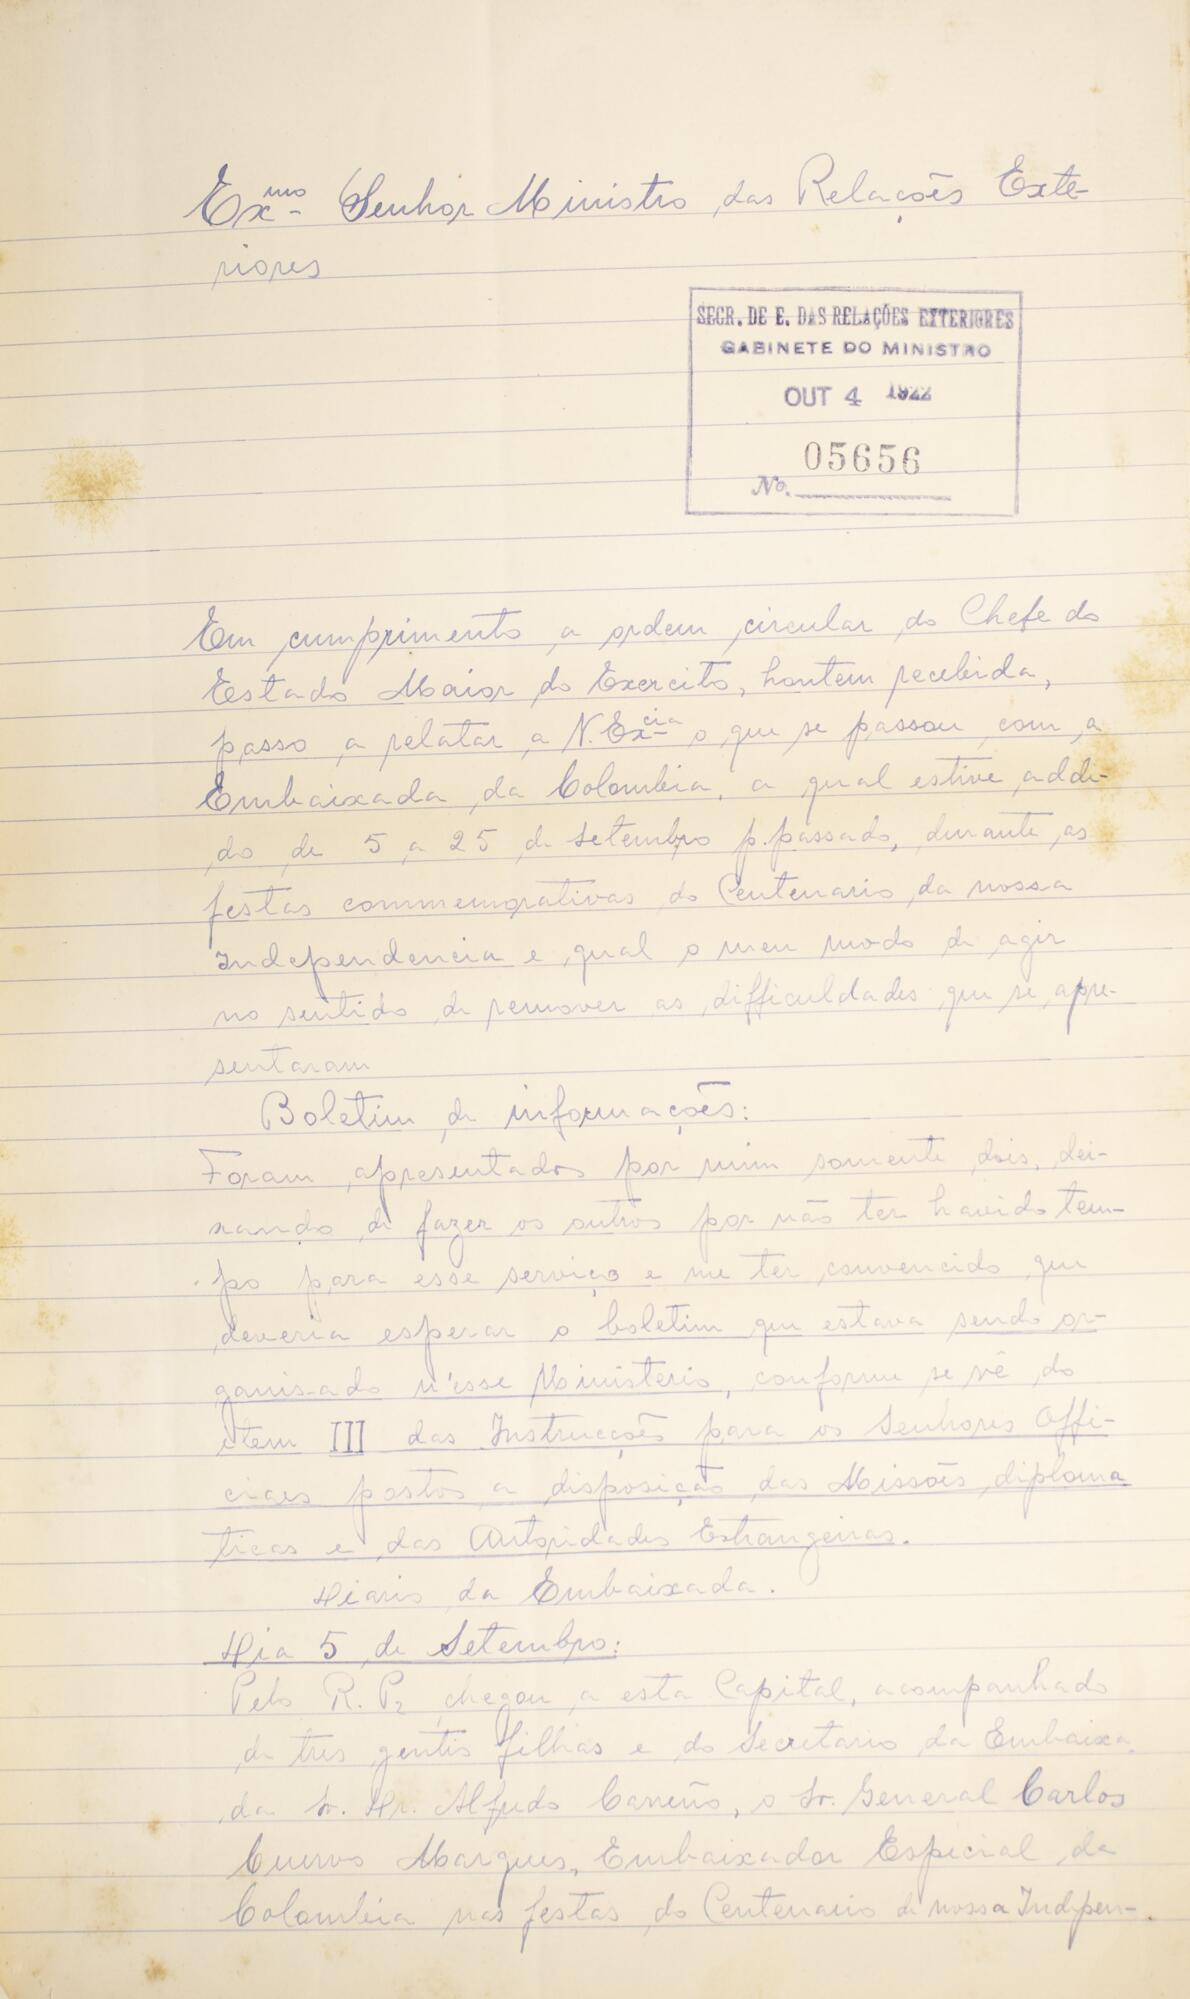 Exmo Senhor Ministro das Relações Exte-
riores
SECR. DE E. DAS RELAÇÕES EXTERIORES
GABINETE DO MINISTRO
OUT 4 1922
05656
No.
Em cumprimento a ordem circular do Chefe do
Estado Maior do Exercito, hontem recebida,
passo a relatar a V. Excia o que se passou com a
Embaixada da Colombia, a qual estive addi-
do de 5 a 25 de Setembro p. passado, durante as
festas commemorativas do Centenario da nossa
Independencia e qual o meu modo de agir
no sentido de remover as difficuldades que se apre-
sentaram
Boletim de informações:
Foram apresentados por mim somente dois, dei-
xando de fazer os outros por não ter havido tem-
po para esse serviço e me ter convencido que
deveria esperar o boletim que estava sendo or-
ganisado n'esse Ministerio, conforme se vê do
item III das Instrucções para os Senhores Offi-
ciaes postos a disposição das Missões diploma
ticas e das Autoridades Estrangeiras.
Diario da Embaixada.
Dia 5 de Setembro:
Pelo R. P2 chegou a esta Capital, acompanhado
de tres gentis filhas e do Secretario da Embaixa
da Sr. Dr. Alfredo Carreño, o Sr. General Carlos
Cuervo Marques, Embaixador Especial da
Colombia nas festas do Centenario de nossa Indepen-